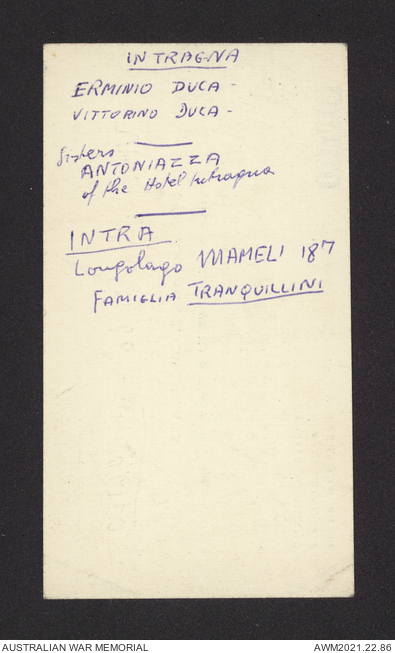 INTRAGNA
ERMINIO DUCA -
VITTORINO DUCA -
Sisters
ANTONIAZZA
of the Hotel Intragna
INTRA
Lungolago MAMELI 187
FAMIGLIA TRANQUILLINI
AUSTRALIAN WAR MEMORIAL
AWM2021.22.86